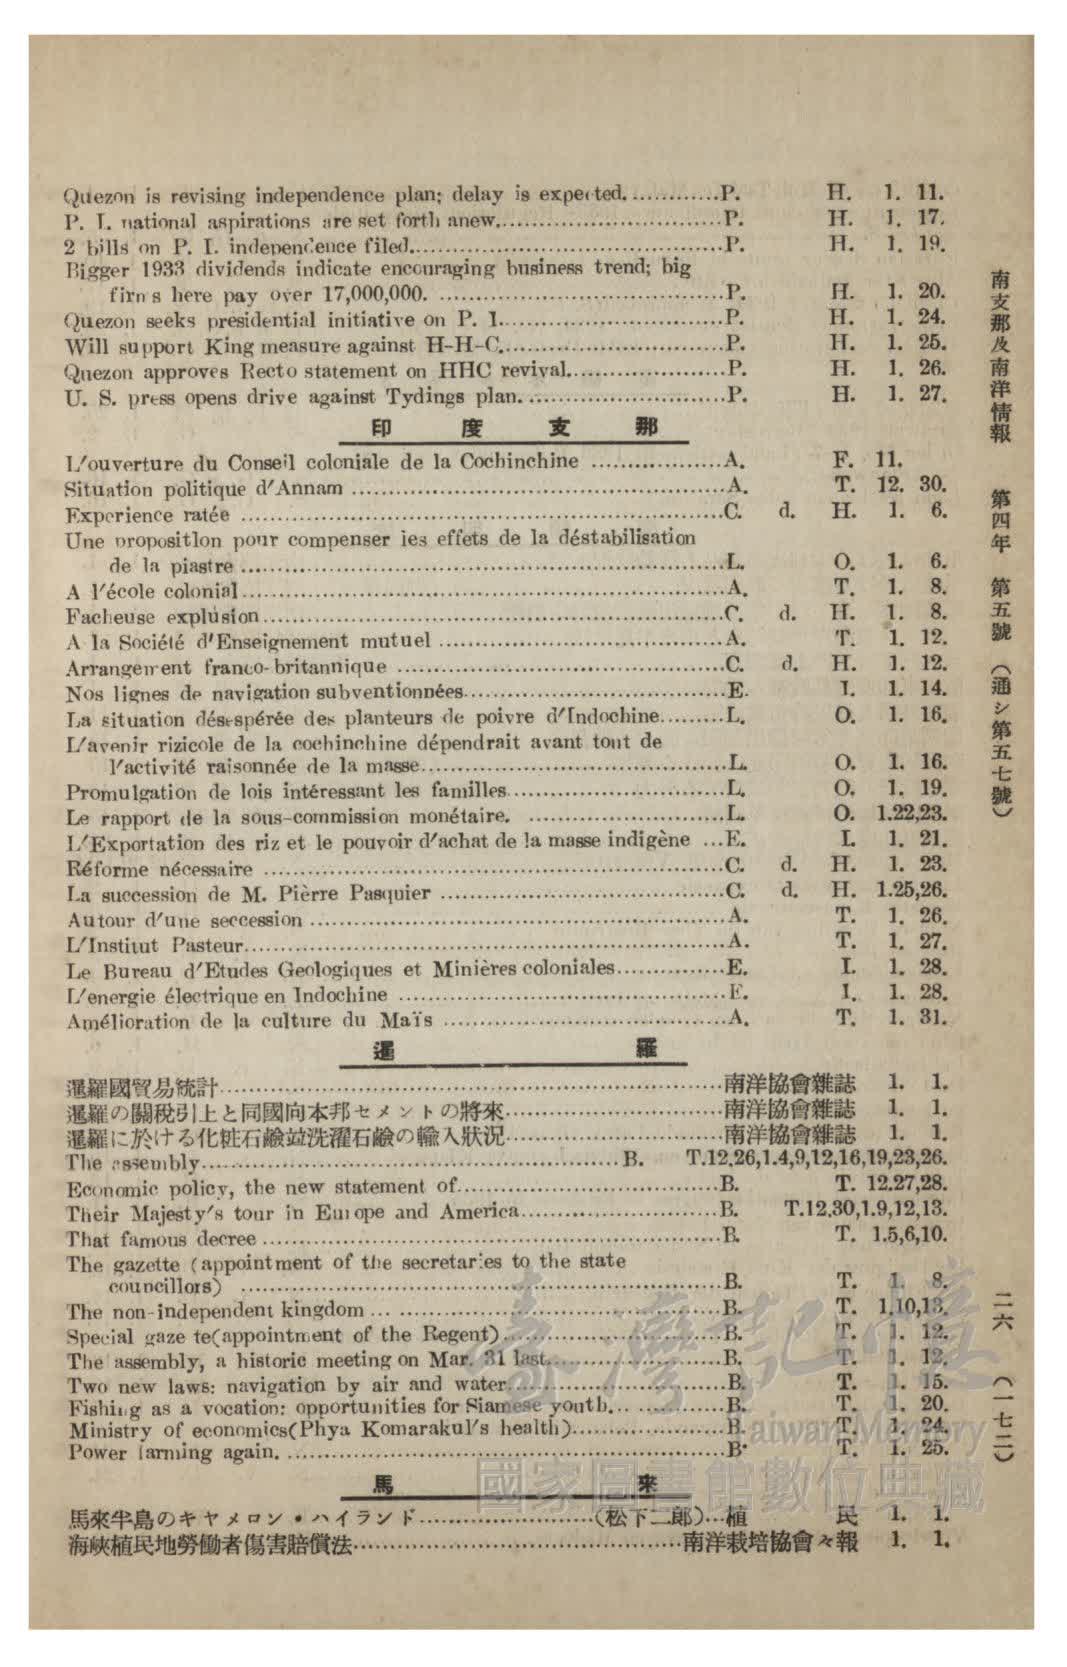 Quezon is revising independence plan; delay is expected.............P. H. 1. 11.
P. I. national aspirations are set forth anew..............................P. H. 1. 17.
2 bills on P. I. independence filed..........................................P. H. 1. 19.
Bigger 1933 dividends indicate encouraging business trend; big
firms here pay over 17,000,000. .......................................P. H. 1. 20.
Quezon seeks presidential initiative on P. I...............................P. H. 1. 24.
Will support King measure against H-H-C...............................P. H. 1. 25.
Quezon approves Recto statement on HHC revival......................P. H. 1. 26.
U. S. press opens drive against Tydings plan. ...........................P. H. 1. 27.
印度支那
L'ouverture du Conseil coloniale de la Cochinchine ..................A. F. 11.
Situation politique d'Annam ...................................................A. T. 12. 30.
Experience ratée ..................................................................C. d. H. 1. 6.
Une proposition pour compenser les effets de la déstabilisation
de la piastre ..................................................................L. O. 1. 6.
A l'école colonial..................................................................A. T. 1. 8.
Facheuse explusion...............................................................C. d. H. 1. 8.
A la Société d'Enseignement mutuel .......................................A. T. 1. 12.
Arrangement franco-britannique .............................................C. d. H. 1. 12.
Nos lignes de navigation subventionnées....................................E. I. 1. 14.
La situation désespérée des planteurs de poivre d'Indochine.........L. O. 1. 16.
L'avenir rizicole de la cochinchine dépendrait avant tout de
l'activité raisonnée de la masse..........................................L. O. 1. 16.
Promulgation de lois intéressant les familles..............................L. O. 1. 19.
Le rapport de la sous-commission monétaire. ...........................L. O. 1.22,23.
L'Exportation des riz et le pouvoir d'achat de la masse indigène ...E. I. 1. 21.
Réforme nécessaire ...............................................................C. d. H. 1. 23.
La succession de M. Pièrre Pasquier .......................................C. d. H. 1.25,26.
Autour d'une seccession .........................................................A. T. 1. 26.
L'Institut Pasteur..................................................................A. T. 1. 27.
Le Bureau d'Etudes Geologiques et Minières coloniales...............E. I. 1. 28.
L'energie électrique en Indochine .............................................E. I. 1. 28.
Amélioration de la culture du Maïs .......................................A. T. 1. 31.
暹羅
暹羅國貿易統計..................................................................南洋協會雜誌 1. 1.
暹羅の關稅引上と同國向本邦セメントの將來..............................南洋協會雜誌 1. 1.
暹羅に於ける化粧石鹼竝洗濯石鹼の輸入狀況..............................南洋協會雜誌 1. 1.
The assembly.........................................................B. T.12.26,1.4,9,12,16,19,23,26.
Economic policy, the new statement of....................................B. T. 12.27,28.
Their Majesty's tour in Europe and America...........................B. T.12.30,1.9,12,13.
That famous decree ...............................................................B. T. 1.5,6,10.
The gazette (appointment of the secretaries to the state
councillors) ..................................................................B. T. 1. 8.
The non-independent kingdom ... .............................................B. T. 1.10,13.
Special gaze te(appointment of the Regent)..............................B. T. 1. 12.
The assembly, a historic meeting on Mar. 31 last........................B. T. 1. 12.
Two new laws: navigation by air and water..............................B. T. 1. 15.
Fishing as a vocation: opportunities for Siamese youth................B. T. 1. 20.
Ministry of economics(Phya Komarakul's health).....................B. T. 1. 24.
Power farming again. ............................................................B. T. 1. 25.
馬來
馬來半島のキヤメロン・ハイランド........................(松下二郎)...植民 1. 1.
海峽植民地勞働者傷害賠償法.............................................南洋栽培協會々報 1. 1.
南支那及南洋情報 第四年 第五號 (通シ第五七號)
二六 (一七二)
臺灣記憶
Taiwan Memory
國家圖書館數位典藏